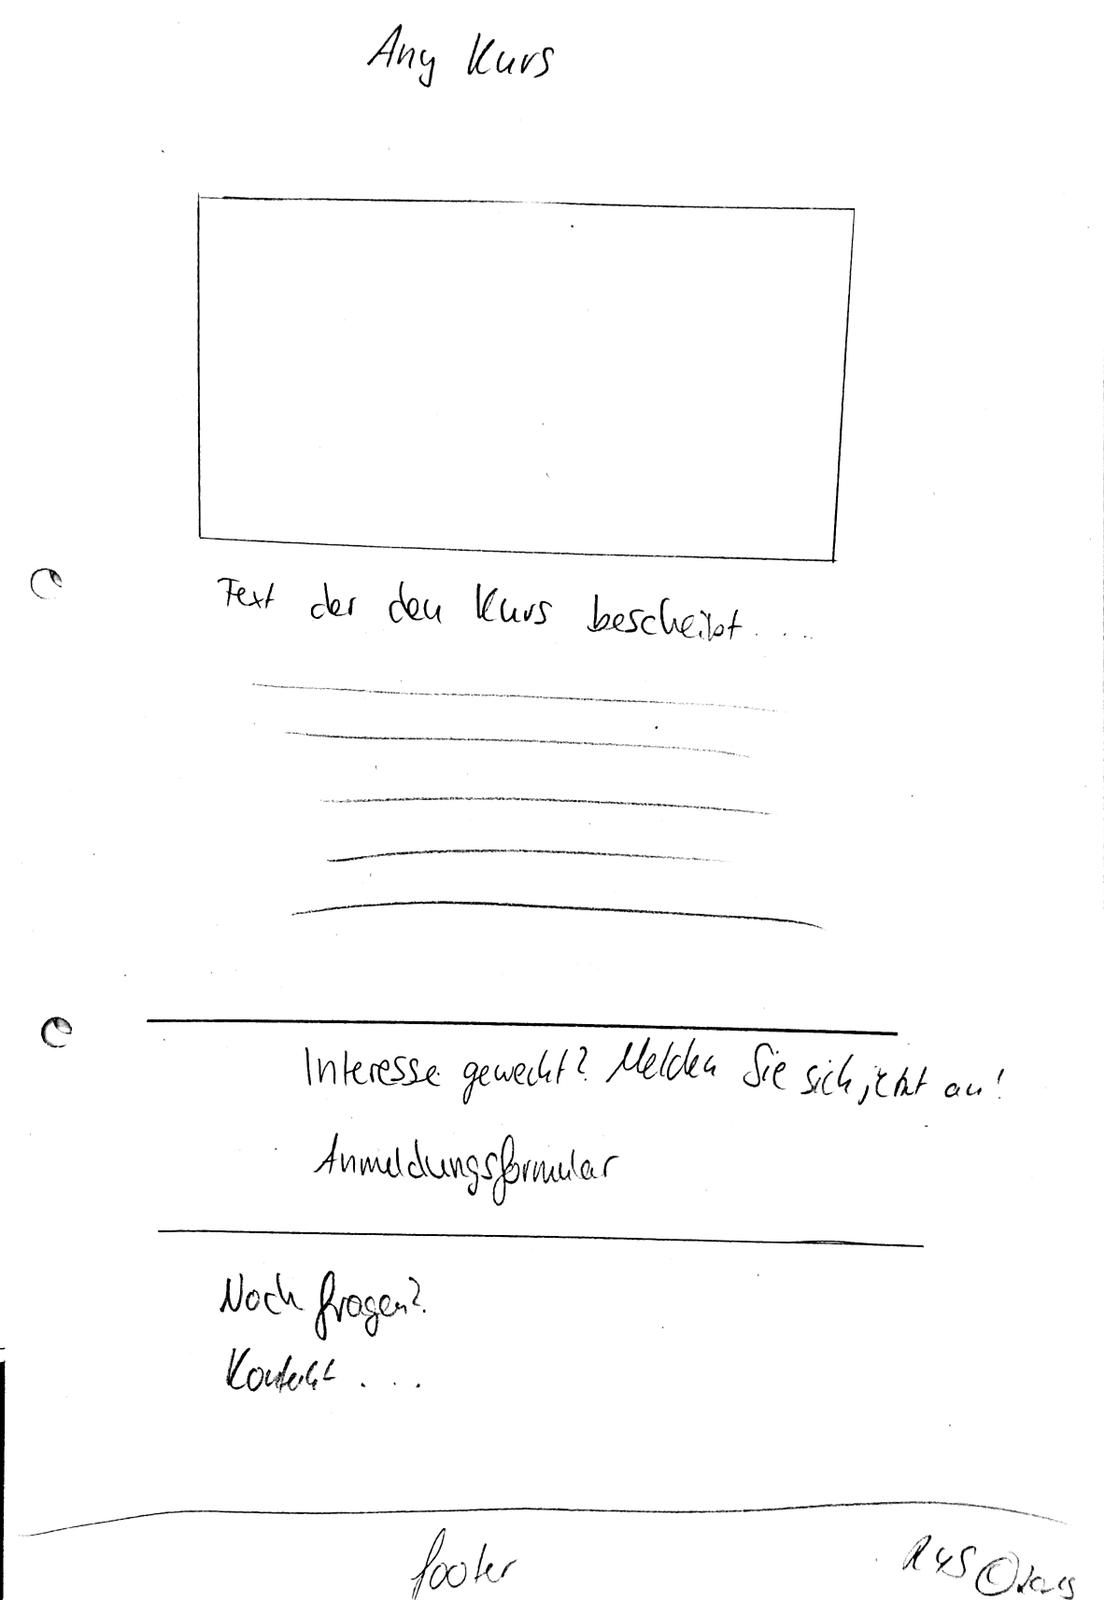 Any Kurs
Text der den Kurs bescheibt....
Interesse geweckt? Melden Sie sich jetzt an!
Anmeldungsformular
Noch fragen?
Kontakt ...
footer
©